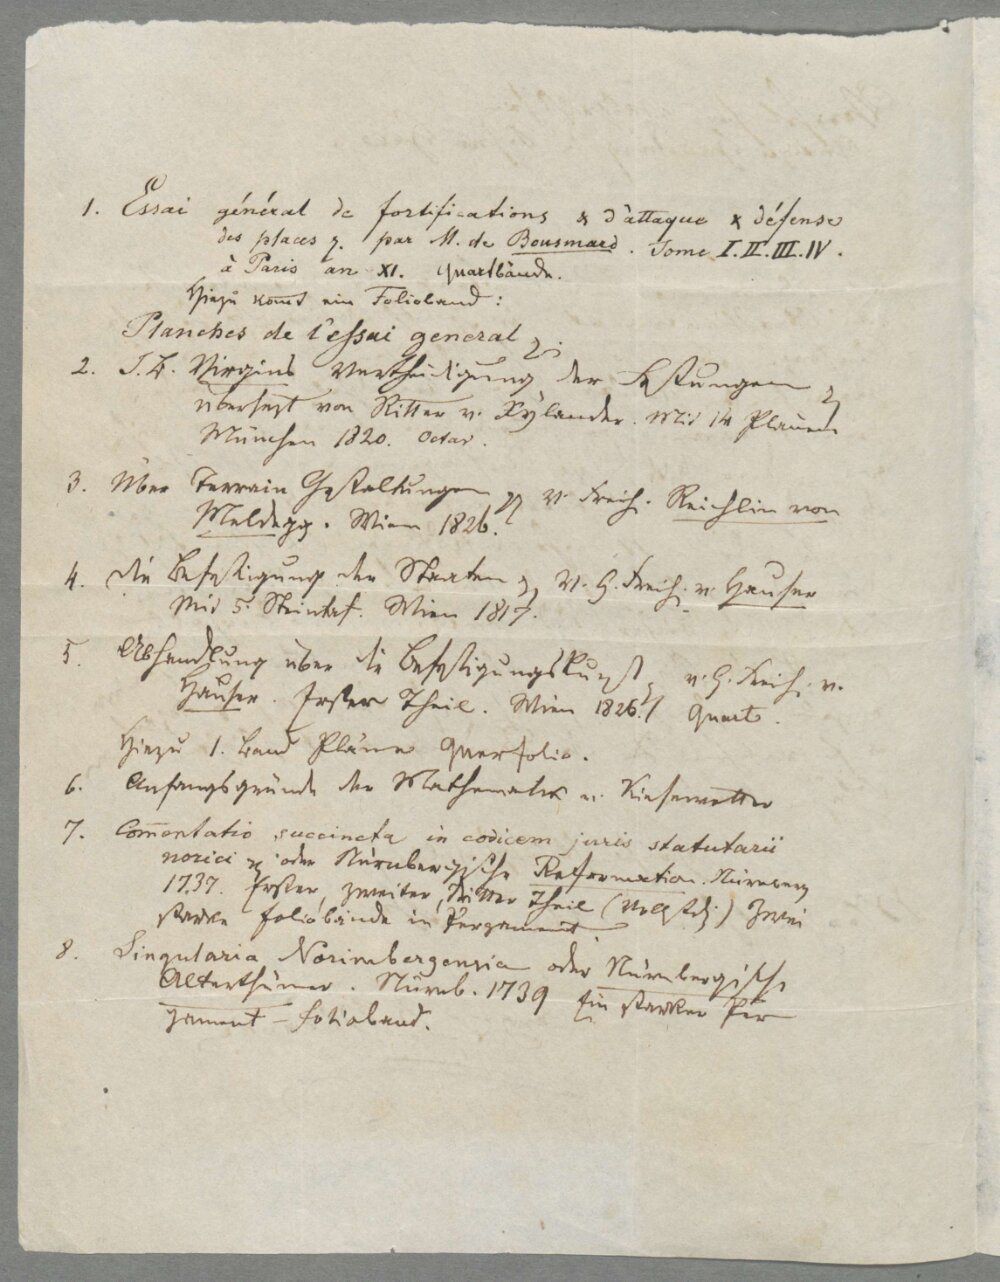 1. Essai général de fortifications & d'attaque & défense
des places &. par M. de Bousmard. Tome I. II. III. IV.
à Paris an XI. Quartbände.
Hiezu komt ein Folioband:
Planches de l'essai general &.
2. J. B. Virgins Vertheidigung der Festungen &
übersezt von Ritter v. Xylander. Mit 14 Plänen
München 1820. Octav.
3. Über Terrain Gestaltungen & v. Freih. Reichlin von
Meldegg. Wien 1826.
4. Die Befestigung der Staaten &, v. G. Freih. v. Hauser
Mit 5. Steintaf. Wien 1817.
5. Abhandlung über die Befestigungskunst & v. G. Freih. v.
Hauser. Erster Theil. Wien 1826. Quart.
Hiezu 1. Band Pläne Querfolio.
6. Anfangsgründe der Mathematik v. Kiesewetter
7. Com̄entatio succincta in codicem juris statutarii
norici & oder Nürnbergische Reformation. Nürnberg
1737. Erster, zweiter, dritter Theil (Vollstdg) Zwei
starke Foliobände in Pergament
8. Singularia Norimbergensia oder Nürnbergische
Alterthümer. Nürnb. 1739 Ein starker Per
gament-Folioband.